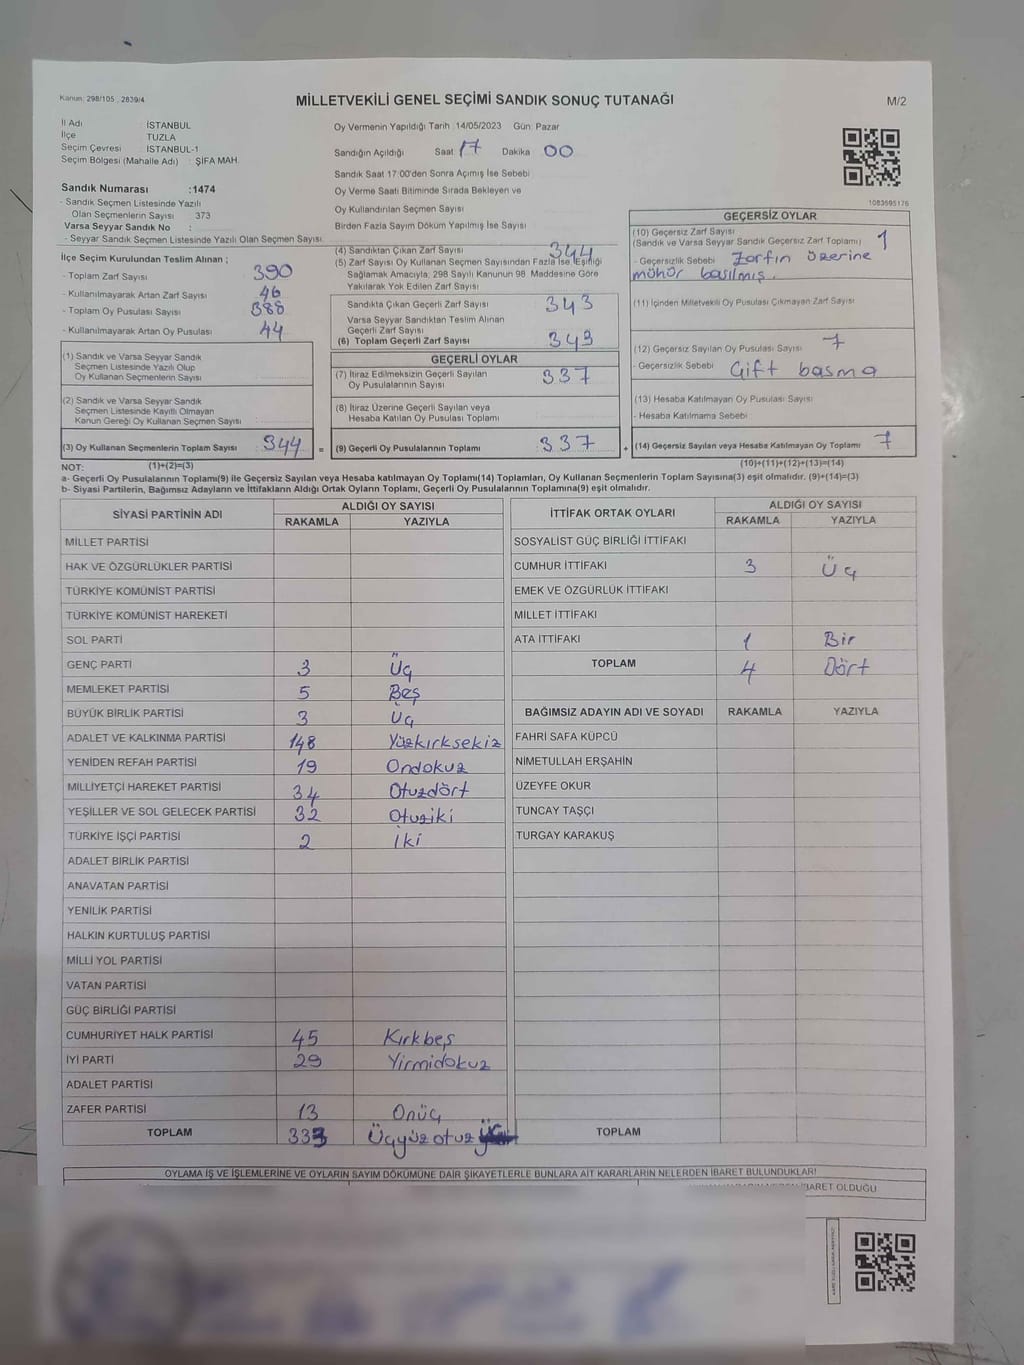 Kanun: 298/105 , 2839/4
MİLLETVEKİLİ GENEL SEÇİMİ SANDIK SONUÇ TUTANAĞI
M/2
İl Adı : İSTANBUL
İlçe TUZLA
Seçim Çevresi : İSTANBUL-1
Seçim Bölgesi (Mahalle Adı) : ŞİFA MAH.
Sandık Numarası :1474
- Sandık Seçmen Listesinde Yazılı
Olan Seçmenlerin Sayısı 373
Varsa Seyyar Sandık No :
- Seyyar Sandık Seçmen Listesinde Yazılı Olan Seçmen Sayısı.
İlçe Seçim Kurulundan Teslim Alınan ;
- Toplam Zarf Sayısı 390
- Kullanılmayarak Artan Zarf Sayısı 46
- Toplam Oy Pusulası Sayısı 388
- Kullanılmayarak Artan Oy Pusulası 44
(1) Sandık ve Varsa Seyyar Sandık
Seçmen Listesinde Yazılı Olup
Oy Kullanan Seçmenlerin Sayısı
(2) Sandık ve Varsa Seyyar Sandık
Seçmen Listesinde Kayıtlı Olmayan
Kanun Gereği Oy Kullanan Seçmen Sayısı
(3) Oy Kullanan Seçmenlerin Toplam Sayısı 344 =
Oy Vermenin Yapıldığı Tarih :14/05/2023 Gün: Pazar
Sandığın Açıldığı Saat 17 Dakika 00
Sandık Saat 17:00'den Sonra Açımış İse Sebebi
Oy Verme Saati Bitiminde Sırada Bekleyen ve
Oy Kullandırılan Seçmen Sayısı
Birden Fazla Sayım Döküm Yapılmış İse Sayısı
(4) Sandıktan Çıkan Zarf Sayısı 344
(5) Zarf Sayısı Oy Kullanan Seçmen Sayısından Fazla İse, Eşitliği
Sağlamak Amacıyla; 298 Sayılı Kanunun 98. Maddesine Göre
Yakılarak Yok Edilen Zarf Sayısı
Sandıkta Çıkan Geçerli Zarf Sayısı 343
Varsa Seyyar Sandıktan Teslim Alınan
Geçerli Zarf Sayısı
(6) Toplam Geçerli Zarf Sayısı 343
GEÇERLİ OYLAR
(7) İtiraz Edilmeksizin Geçerli Sayılan
Oy Pusulalarının Sayısı 337
(8) İtiraz Üzerine Geçerli Sayılan veya
Hesaba Katılan Oy Pusulası Toplamı
(9) Geçerli Oy Pusulalarının Toplamı 337 +
1083695176
GEÇERSİZ OYLAR
(10) Geçersiz Zarf Sayısı
(Sandık ve Varsa Seyyar Sandık Geçersiz Zarf Toplamı) 1
- Geçersizlik Sebebi Zarfın üzerine
mühür basılmış.
(11) İçinden Milletvekili Oy Pusulası Çıkmayan Zarf Sayısı
(12) Geçersiz Sayılan Oy Pusulası Sayısı 7
- Geçersizlik Sebebi Çift basma
(13) Hesaba Katılmayan Oy Pusulası Sayısı
- Hesaba Katılmama Sebebi
(14) Geçersiz Sayılan veya Hesaba Katılmayan Oy Toplamı 7
NOT: (1)+(2)=(3) (10)+(11)+(12)+(13)=(14)
a- Geçerli Oy Pusulalarının Toplamı(9) ile Geçersiz Sayılan veya Hesaba katılmayan Oy Toplamı(14) Toplamları, Oy Kullanan Seçmenlerin Toplam Sayısına(3) eşit olmalıdır. (9)+(14)=(3)
b- Siyasi Partilerin, Bağımsız Adayların ve İttifakların Aldığı Ortak Oyların Toplamı, Geçerli Oy Pusulalarının Toplamına(9) eşit olmalıdır.
SİYASİ PARTİNİN ADI ALDIĞI OY SAYISI
RAKAMLA YAZIYLA
MİLLET PARTİSİ
HAK VE ÖZGÜRLÜKLER PARTİSİ
TÜRKİYE KOMÜNİST PARTİSİ
TÜRKİYE KOMÜNİST HAREKETİ
SOL PARTİ
GENÇ PARTİ 3 Üç
MEMLEKET PARTİSİ 5 Beş
BÜYÜK BİRLİK PARTİSİ 3 Üç
ADALET VE KALKINMA PARTİSİ 148 Yüzkırksekiz
YENİDEN REFAH PARTİSİ 19 Ondokuz
MİLLİYETÇİ HAREKET PARTİSİ 34 Otuzdört
YEŞİLLER VE SOL GELECEK PARTİSİ 32 Otuziki
TÜRKİYE İŞÇİ PARTİSİ 2 İki
ADALET BİRLİK PARTİSİ
ANAVATAN PARTİSİ
YENİLİK PARTİSİ
HALKIN KURTULUŞ PARTİSİ
MİLLİ YOL PARTİSİ
VATAN PARTİSİ
GÜÇ BİRLİĞİ PARTİSİ
CUMHURİYET HALK PARTİSİ 45 Kırkbeş
İYİ PARTİ 29 Yirmidokuz
ADALET PARTİSİ
ZAFER PARTİSİ 13 Onüç
TOPLAM 333 Üçyüzotuz
İTTİFAK ORTAK OYLARI ALDIĞI OY SAYISI
RAKAMLA YAZIYLA
SOSYALİST GÜÇ BİRLİĞİ İTTİFAKI
CUMHUR İTTİFAKI 3 Üç
EMEK VE ÖZGÜRLÜK İTTİFAKI
MİLLET İTTİFAKI
ATA İTTİFAKI 1 Bir
TOPLAM 4 Dört
BAĞIMSIZ ADAYIN ADI VE SOYADI RAKAMLA YAZIYLA
FAHRİ SAFA KÜPCÜ
NİMETULLAH ERŞAHİN
ÜZEYFE OKUR
TUNCAY TAŞÇI
TURGAY KARAKUŞ
TOPLAM
OYLAMA İŞ VE İŞLEMLERİNE VE OYLARIN SAYIM DÖKÜMÜNE DAİR ŞİKAYETLERLE BUNLARA AİT KARARLARIN NELERDEN İBARET BULUNDUKLARI
İBARET OLDUĞU